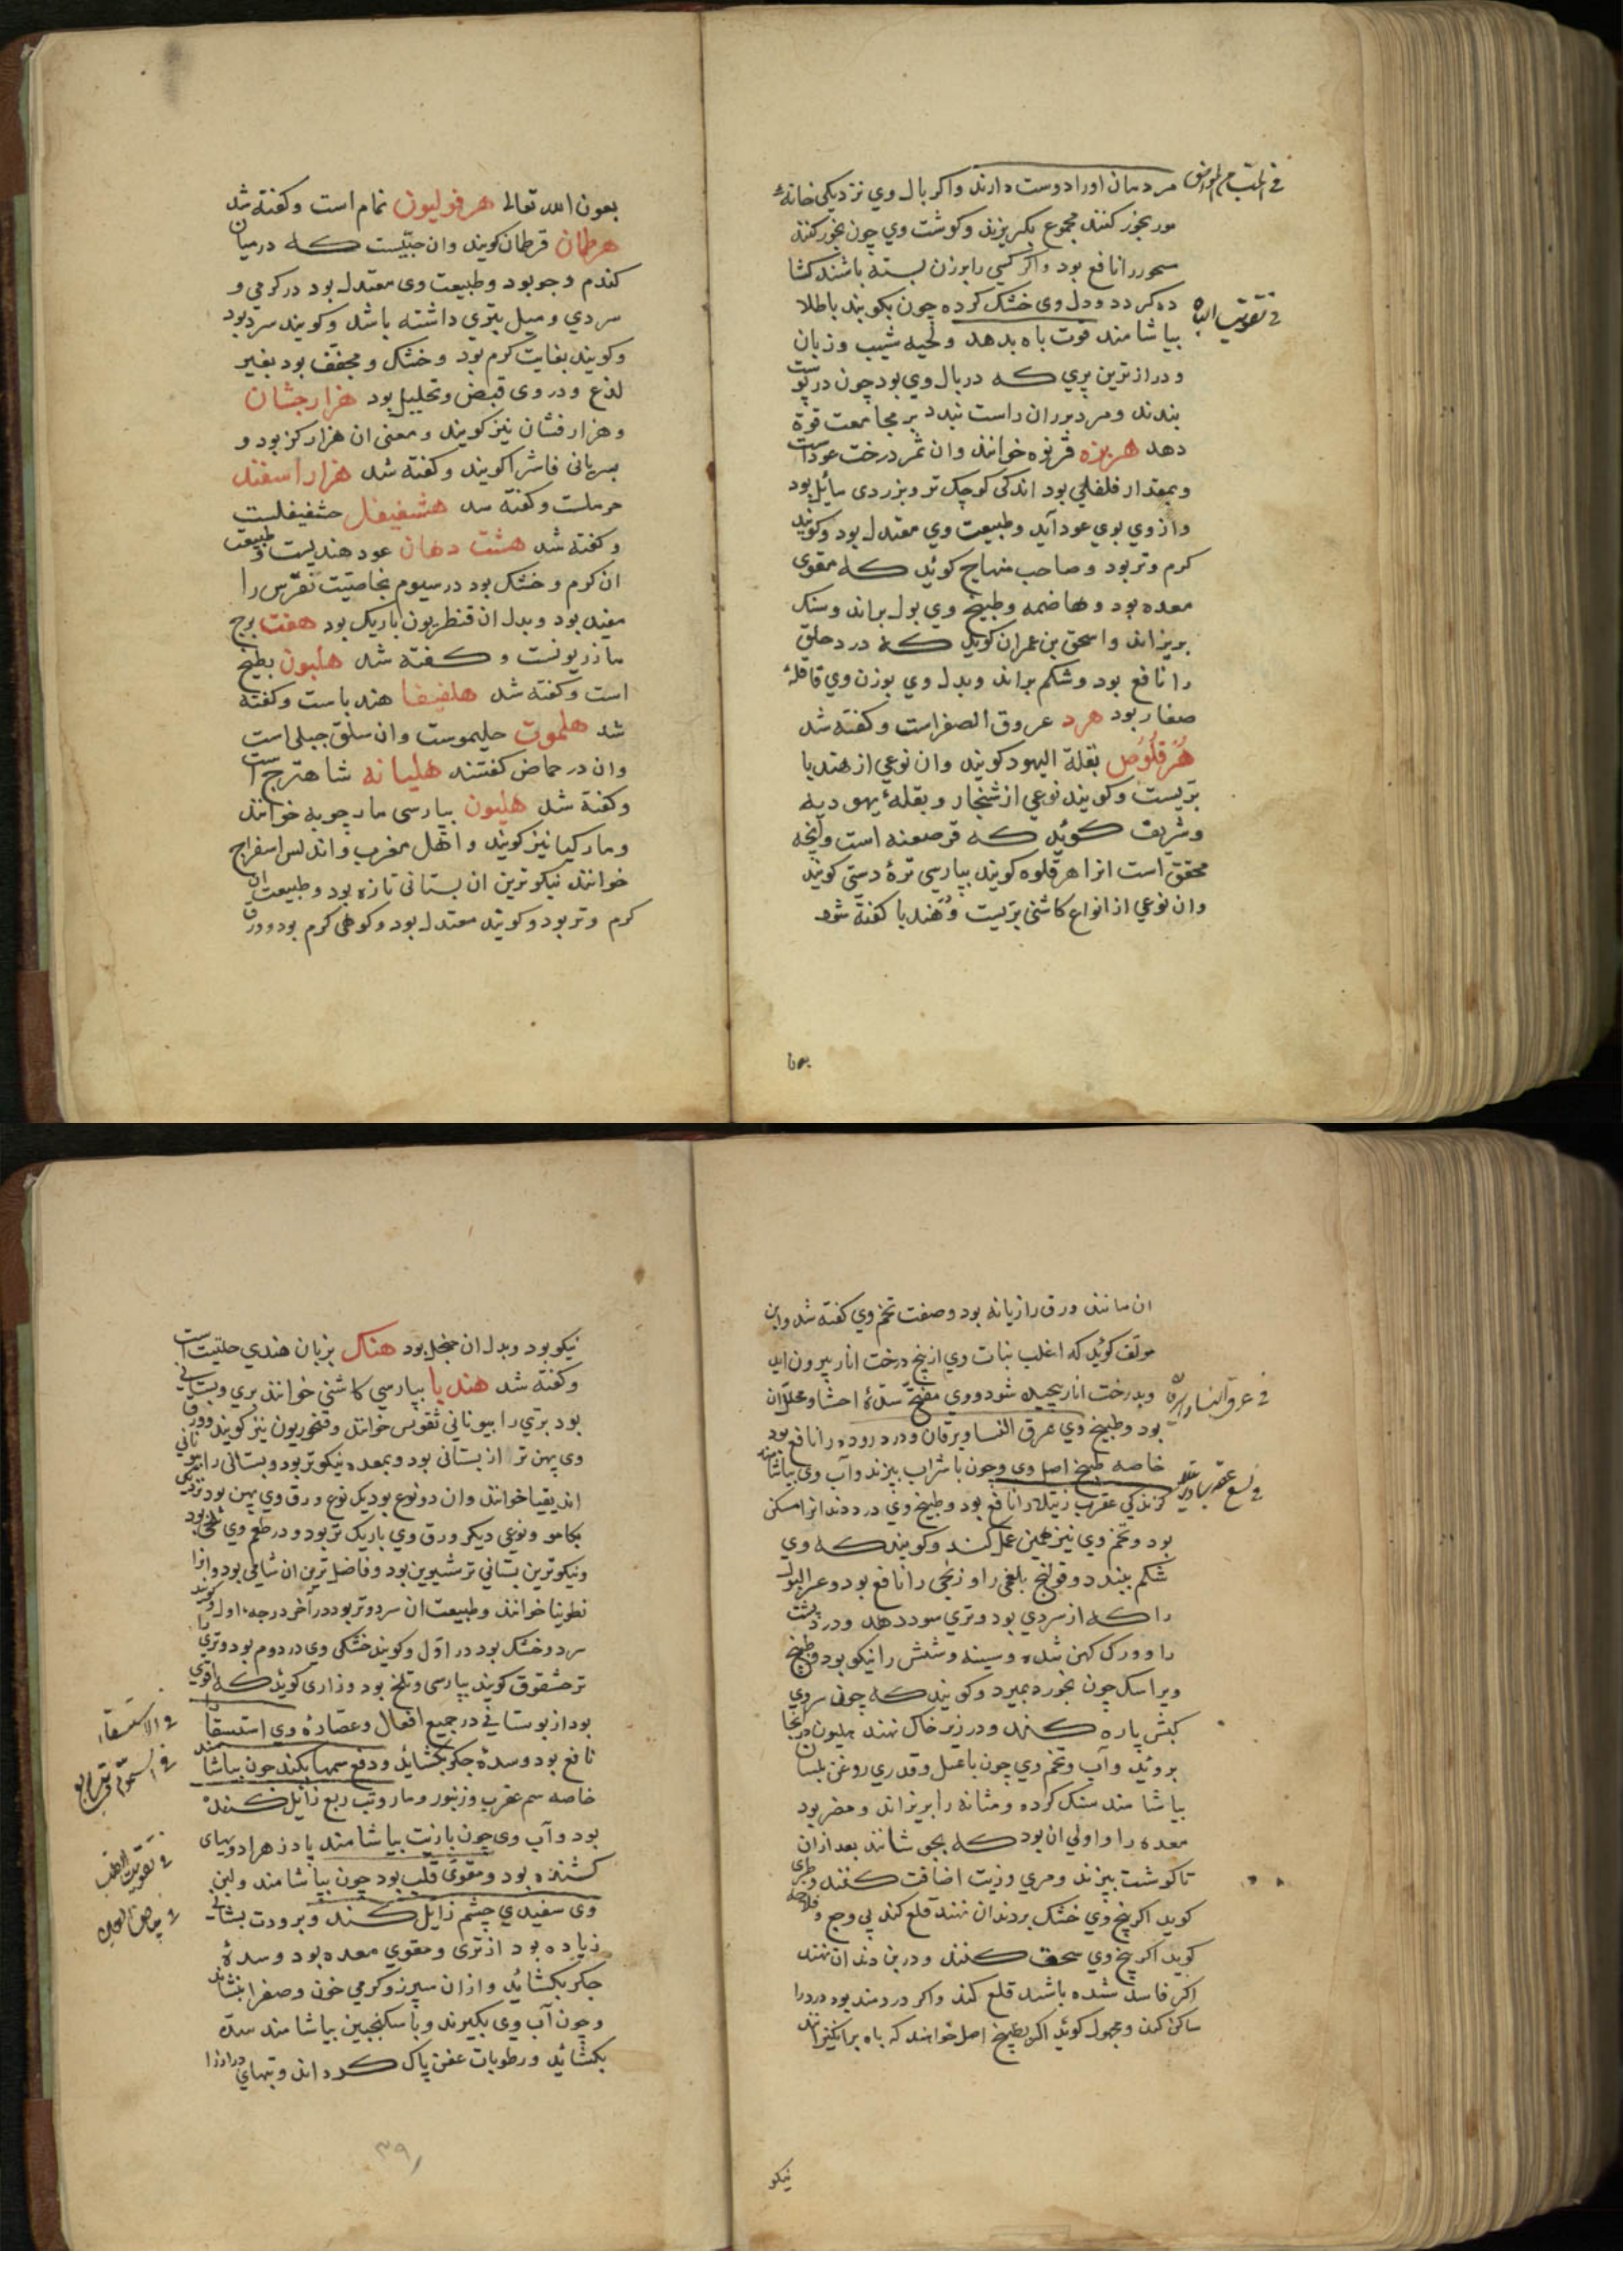 مردمان اورا دوست دارند واکر بال وی نزدیکی خانهٔ
مور بخور کنند مجموع بکریزند وکوشت وی چون بخور کنند
مسحور را نافع بود واکر کسی را بر زن بسته باشند کشا
ده کردد ودل وی خشک کرده چون بکویند باطلا
بیاشامند قوت باه بدهد ولحیه شیب وزبان
ودرازترین پری که در بال وی بود چون در پوست
بندند ومرد بر ران راست بندد بر مجامعت قوة
دهد هرنوه قرنوه خوانند وان ثمر درخت عوداست
وبمقدار فلفلی بود اندکی کوچک تر وبزردی مائل بود
وازوی بوی عود آید وطبیعت وی معتدل بود وکویند
کرم وتر بود وصاحب منهاج کوئید که مقوی
معده بود وهاضمه وطبیخ وی بول براند وسنک
بریزاند واسحق بن عمران کوید که درد حلق
را نافع بود وشکم براند وبدل وی بوزن وی قاقلهٔ
صغار بود هرد عروق الصفراست وکفته شد
هرقلوص بقلة الیهود کویند وان نوعی از هندبا
بریست وکویند نوعی از شنجار وبقلهٔ یهودیه
وشریف کوئید که قرصعنه است وآنچه
محقق است انرا هرقلوه کویند بپارسی ترهٔ دستی کویند
وان نوعی از انواع کاشنی بریست وهندبا کفته شود
فی تقویت الباه
بعون
بعون الله تعالی هرفولیون نمام است وکفته شد
هرطمان قرطمان کویند وان حبیست که درمیان
کندم وجو بود وطبیعت وی معتدل بود در کرمی و
سردی ومیل بتری داشته باشد وکویند سرد بود
وکویند بغایت کرم بود وخشک ومجفف بود بغیر
لذع ودروی قبض وتحلیل بود هزارجشان
وهزارفشان نیز کویند ومعنی ان هزارکز بود و
بسریانی فاشرا کویند وکفته شد هزاراسفند
حرملست وکفته شد هشفیفل حشفیفلست
وکفته شد هشت دهان عود هندیست وطبیعت
ان کرم وخشک بود در سیوم بخاصیت نقرس را
مفید بود وبدل ان قنطریون باریک بود هفت برج
ماذریونست وکفته شد هلبون بطیخ
است وکفته شد هلفیفا هندباست وکفته
شد هلموت حلیموست وان سلق جبلی است
وان در حماض کفتند هلیانه شاهترج است
وکفته شد هلیون بپارسی مارچوبه خوانند
ومارکیا نیز کویند واهل مغرب واندلس اسفراج
خوانند نیکوترین ان بستانی تازه بود وطبیعت ان
کرم وتر بود وکویند معتدل بود وکوهی کرم بود وورق
ان مانند ورق رازیانه بود وصفت تخم وی کفته شد واین
مولف کوئید که اغلب نبات وی از بیخ درخت انار بیرون اید
وبدرخت انار پیچیده شود ووی مفتح سدهٔ احشا ومحلل ان
بود وطبیخ وی عرق النسا ویرقان ودرد روده را نافع بود
خاصه طبیخ اصل وی وچون با شراب بپزند وآب وی بیاشامند
کزندکی عقرب رتیلا را نافع بود وطبیخ وی درد دندانرا مسکن
بود وتخم وی نیز همین عمل کند وکویند که وی
شکم ببندد وقولنج بلغمی را وریحی را نافع بود وعسر البول
را که از سردی بود وتری سود دهد ودرد پشت
را وورک کهن شده وسینه وشش را نیکو بود وطبیخ
ویرا سک چون بخورد بمیرد وکویند که چون سروی
کبش پاره کنند ودر زیر خاک نهند هلیون از انجا
بروئید وآب وتخم وی چون باعسل وقدری روغن بلسان
بیاشامند سنک کرده ومثانه را بریزاند ومضر بود
معده را واولی ان بود که بجوشانند بعد ازان
تا کوشت بپزند ومری وزیت اضافت کنند وطبری
کوید اکر بیخ وی خشک بردندان نهند قلع کند بی وجع وفلاحه
کوید اکر بیخ وی سحق کنند ودر بن دندان نهند
اکر فاسد شده باشد قلع کند واکر دردمند بود دردرا
ساکن کند ومجهول کوئید اکر بطبیخ اصل خوانند که باه برانکیزاند
فی عرق النسا
نیکو
نیکو بود وبدل ان حنجل بود هنک بزبان هندی حلتیت است
وکفته شد هندبا بپارسی کاشنی خوانند بری وبستانی
بود بری را بیونانی ثقویس خوانند وقنخوریون نیز کویند وورق
وی پهن تر از بستانی بود وبمعده نیکوتر بود وبستانی را بیونانی
اندیقیا خوانند وان دو نوع بود یک نوع ورق وی پهن بود نزدیک
بکاهو ونوعی دیکر ورق وی باریک تر بود ودر طعم وی تلخی بود
ونیکوترین بستانی تر شیرین بود وفاضل ترین ان شامی بود وانرا
نطوبیا خوانند وطبیعت ان سرد وتر بود در اخر درجه اول وکویند
سرد وخشک بود در اوّل وکویند خشکی وی در دوم بود وتری را
ترخشقوق کویند بپارسی وتلخ بود ورازی کوئید که اقوی
بود از بوستانی در جمیع افعال وعصارهٔ وی استسقا را
نافع بود وسدهٔ جکر بکشائید ودفع سمها بکند چون بیاشامند
خاصه سم عقرب وزنبور ومار وتب ربع زایل کننده
بود وآب وی چون با زیت بیاشامند پادزهر ادویهای
کشنده بود ومقوی قلب بود چون بیاشامند ولبن
وی سفیدی چشم زایل کند وبرودت بستانی
زیاده بود از تری ومقوی معده بود وسدهٔ
جکر بکشائید وازان سپرز وکرمی خون وصفرا بنشاند
وچون آب وی بکیرند وبا سکنجبین بیاشامند سده
بکشائید ورطوبات عفن پاک کرداند وتبهای درازرا
فی الاستسقاء
فی تقویت القلب
۳۹